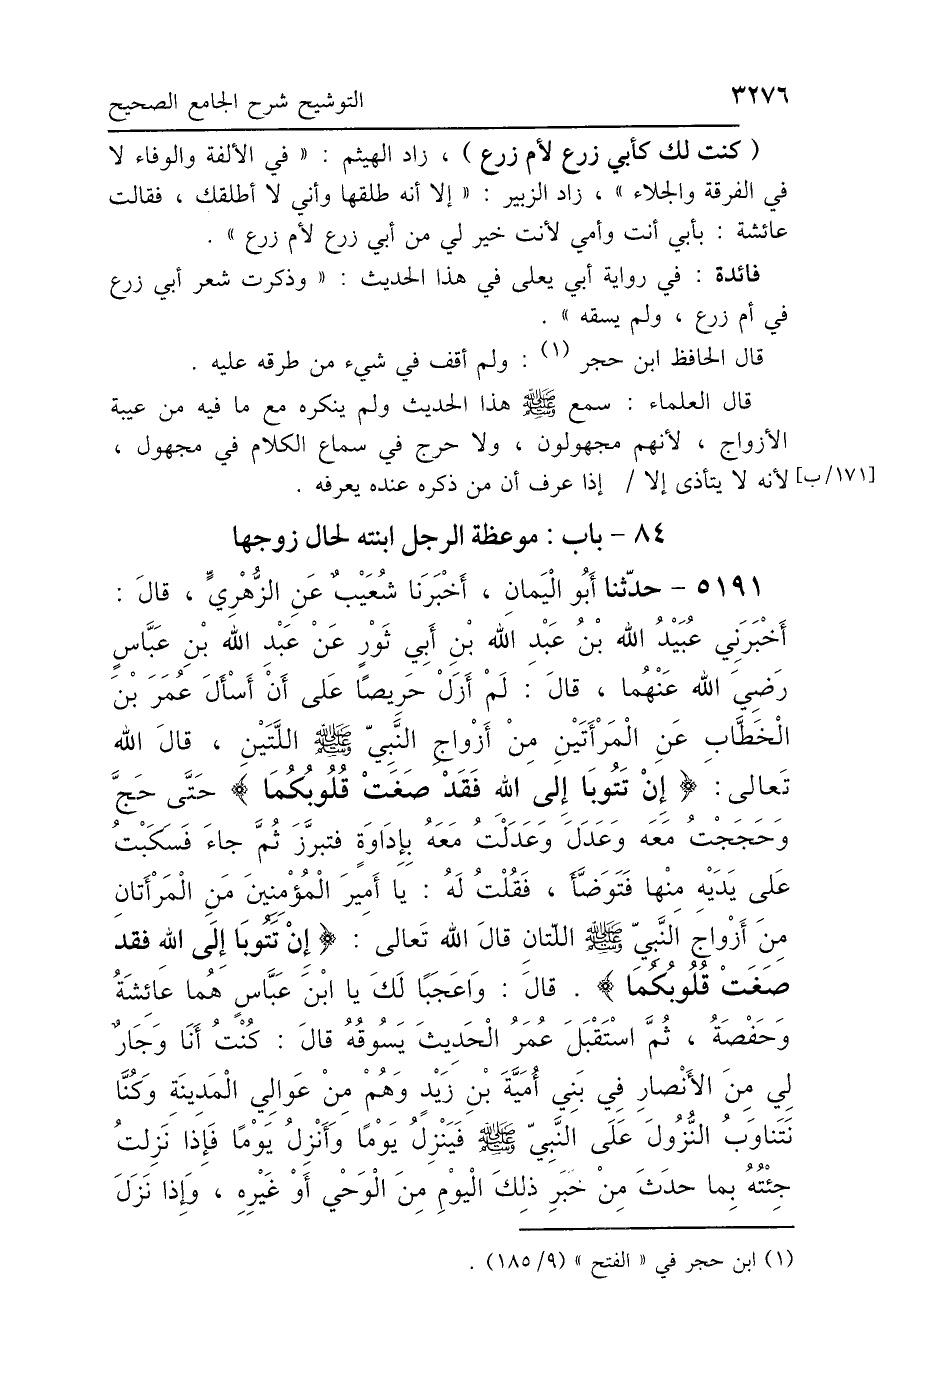 ٣٢٧٦ التوشيح شرح الجامع الصحيح
( كنت لك كأبي زرع لأم زرع ) ، زاد الهيثم : « في الألفة والوفاء لا
في الفرقة والجلاء » ، زاد الزبير : « إلا أنه طلقها وأني لا أطلقك ، فقالت
عائشة : بأبي أنت وأمي لأنت خير لي من أبي زرع لأم زرع » .
فائدة : في رواية أبي يعلى في هذا الحديث : « وذكرت شعر أبي زرع
في أم زرع ، ولم يسقه » .
قال الحافظ ابن حجر (١) : ولم أقف في شيء من طرقه عليه .
قال العلماء : سمع ﷺ هذا الحديث ولم ينكره مع ما فيه من عيبة
الأزواج ، لأنهم مجهولون ، ولا حرج في سماع الكلام في مجهول ،
[١٧١/ب] لأنه لا يتأذى إلا / إذا عرف أن من ذكره عنده يعرفه .
٨٤ - باب : موعظة الرجل ابنته لحال زوجها
٥١٩١ - حدّثنا أَبُو الْيَمانِ ، أَخْبَرَنَا شُعَيْبٌ عَنِ الزُّهْرِيِّ ، قالَ :
أَخْبَرَنِي عُبَيْدُ الله بْنُ عَبْدِ الله بْنِ أَبِي ثَوْرٍ عَنْ عَبْدِ الله بْنِ عَبَّاسٍ
رَضِيَ الله عَنْهُما ، قالَ : لَمْ أَزَلْ حَرِيصًا عَلى أَنْ أَسْأَلَ عُمَرَ بْنَ
الْخَطَّابِ عَنِ الْمَرْأَتَيْنِ مِنْ أَزْواجِ النَّبِيّ ﷺ اللَّتَيْنِ ، قالَ الله
تَعالى : ﴿ إِنْ تَتُوبَا إِلى الله فَقَدْ صَغَتْ قُلُوبُكُمَا ﴾ حَتَّى حَجَّ
وَحَجَجْتُ مَعَه وَعَدَلَ وَعَدَلْتُ مَعَهُ بِإِدَاوَةٍ فتبرَّزَ ثُمَّ جاءَ فَسَكَبْتُ
عَلى يَدَيْهِ مِنْها فَتَوَضَّأَ ، فَقُلْتُ لَهُ : يا أَمِيرَ الْمُؤْمِنِينَ مَنِ الْمَرْأَتانِ
مِنَ أَزْواجِ النَّبِيّ ﷺ اللتان قالَ الله تَعالى : ﴿ إِنْ تَتُوبَا إِلَى الله فقد
صَغَتْ قُلُوبُكُمَا ﴾ . قالَ : وَاعَجَبًا لَكَ يا ابْنَ عَبَّاسٍ هُما عائشَةُ
وَحَفْصَةُ ، ثُمَّ اسْتَقْبَلَ عُمَرُ الْحَدِيثَ يَسُوقُهُ قالَ : كُنْتُ أَنَا وَجَارٌ
لِي مِنَ الأَنْصارِ فِي بَنِي أُمَيَّةَ بْنِ زَيْدٍ وَهُمْ مِنْ عَوالِي الْمَدِينَةِ وَكُنَّا
نَتَناوَبُ النُّزُولَ عَلَى النَّبِيّ ﷺ فَيَنْزِلُ يَوْمًا وَأَنْزِلُ يَوْمًا فَإِذا نَزلتُ
جِئْتُهُ بِما حَدَثَ مِنْ خَبَرِ ذلِكَ الْيَوْمِ مِنَ الْوَحْيِ أَوْ غَيْرِهِ ، وَإِذا نَزَلَ
(١) ابن حجر في « الفتح » (٩/ ١٨٥) .